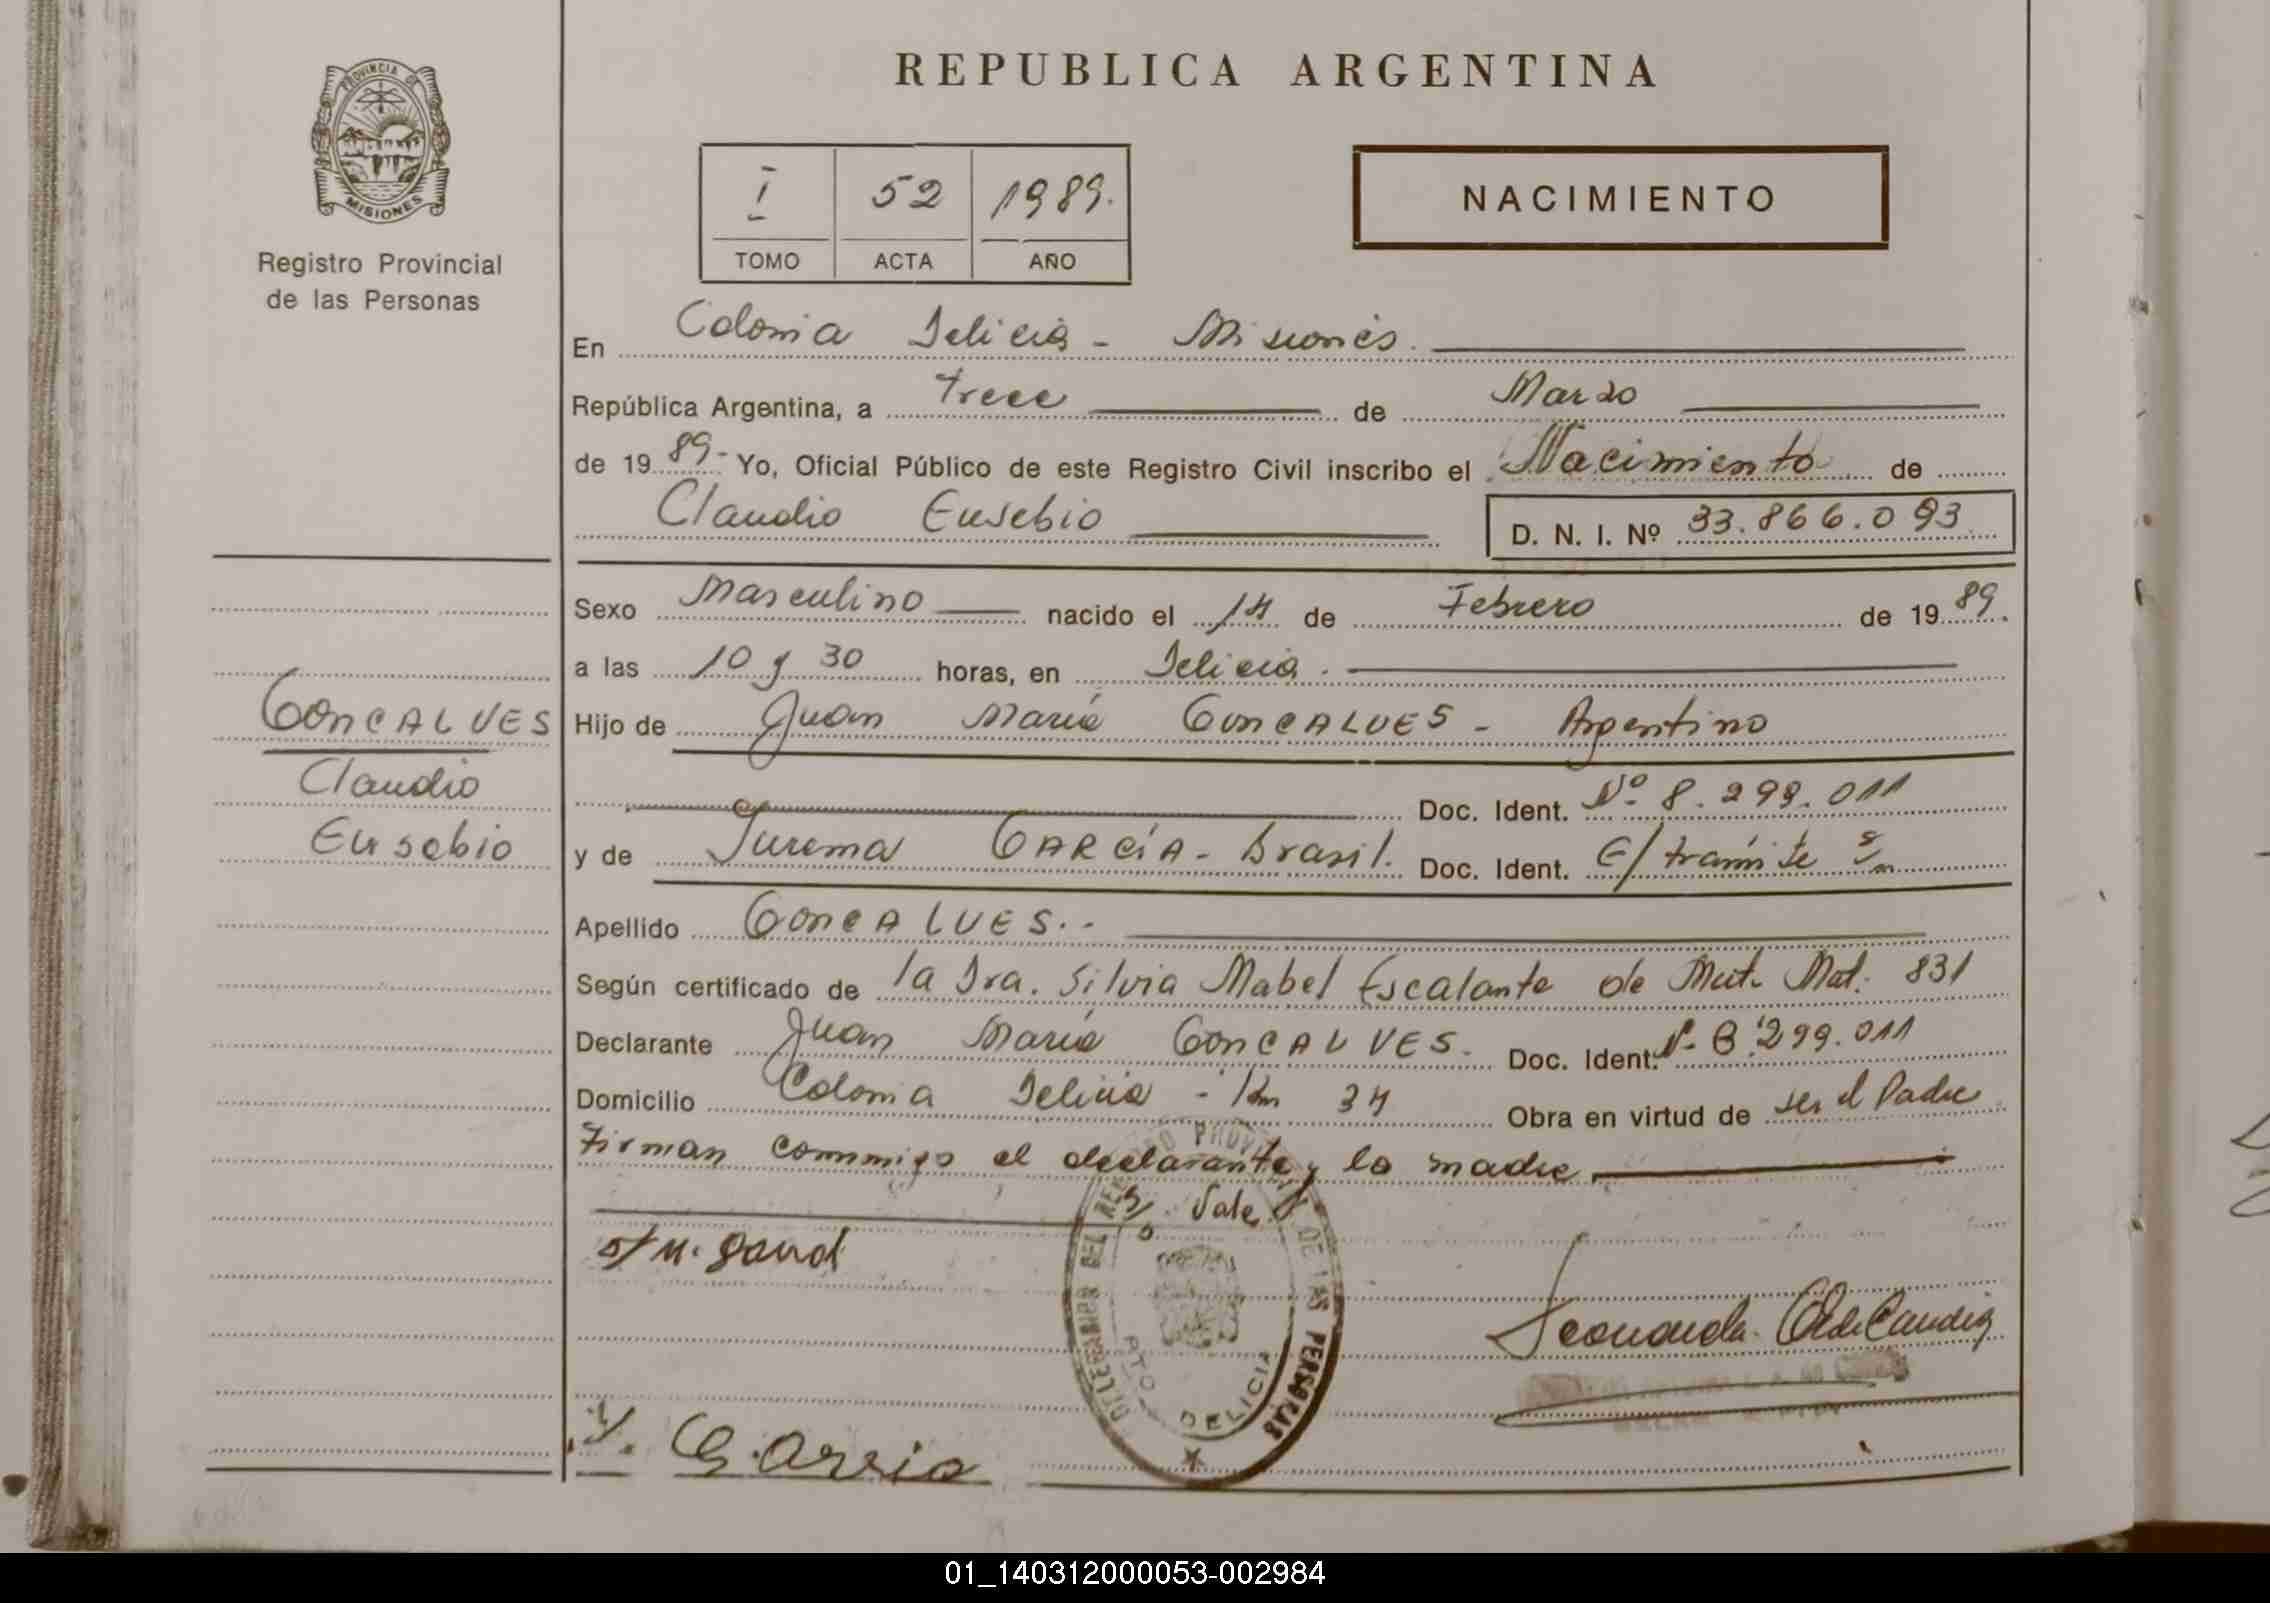 PROVINCIA DE
MISIONES
Registro Provincial
de las Personas
REPUBLICA ARGENTINA
I 52 1989.
TOMO ACTA AÑO
NACIMIENTO
En Colonia Delicia - Misiones.
República Argentina, a trece de Marzo
de 1989- Yo, Oficial Público de este Registro Civil inscribo el Nacimiento de
Claudio Eusebio D. N. I. Nº 33.866.093
Sexo Masculino nacido el 14 de Febrero de 1989.
a las 10 y 30 horas, en Delicia.
GONCALVES
Claudio
Eusebio
Hijo de Juan María GONCALVES - Argentino
Doc. Ident. Nº 8.299.011
y de Jurema GARCÍA - Brasil. Doc. Ident. E/trámite
Apellido GONCALVES.-
Según certificado de la Dra. Silvia Mabel Escalante de Mat. 831
Declarante Juan María GONCALVES. Doc. Ident. Nº 8.299.011
Domicilio Colonia Delicia - Km 34 Obra en virtud de ser el Padre
Firman conmigo el declarante y la madre
Vale
DELICIA
DE LAS PERSONAS
J. Garcia
01_140312000053-002984